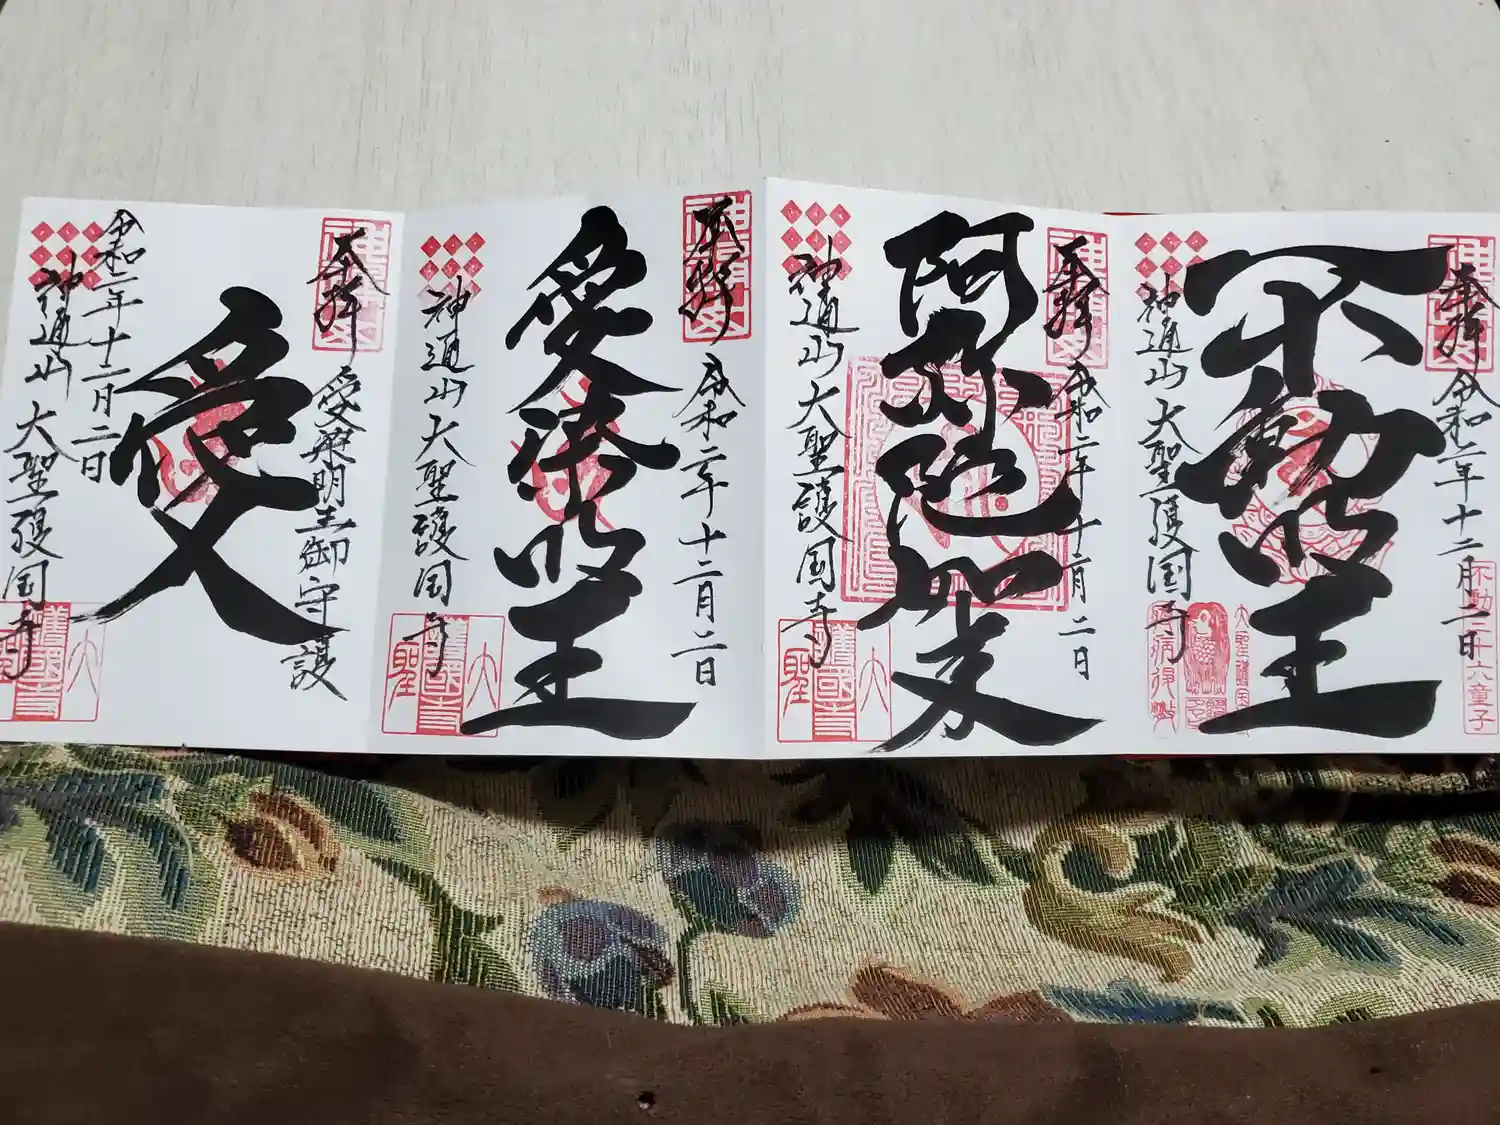 奉拝
令和二年十二月二日
不動明王
神通山 大聖護国寺
不動三十六童子
大聖護国寺
奉拝
令和二年十二月二日
阿弥陀如来
神通山 大聖護国寺
大聖護國寺
奉拝
令和二年十二月二日
愛染明王
神通山 大聖護国寺
大聖護國寺
奉拝
愛染明王御守護
愛
令和二年十二月二日
神通山 大聖護国寺
護國寺